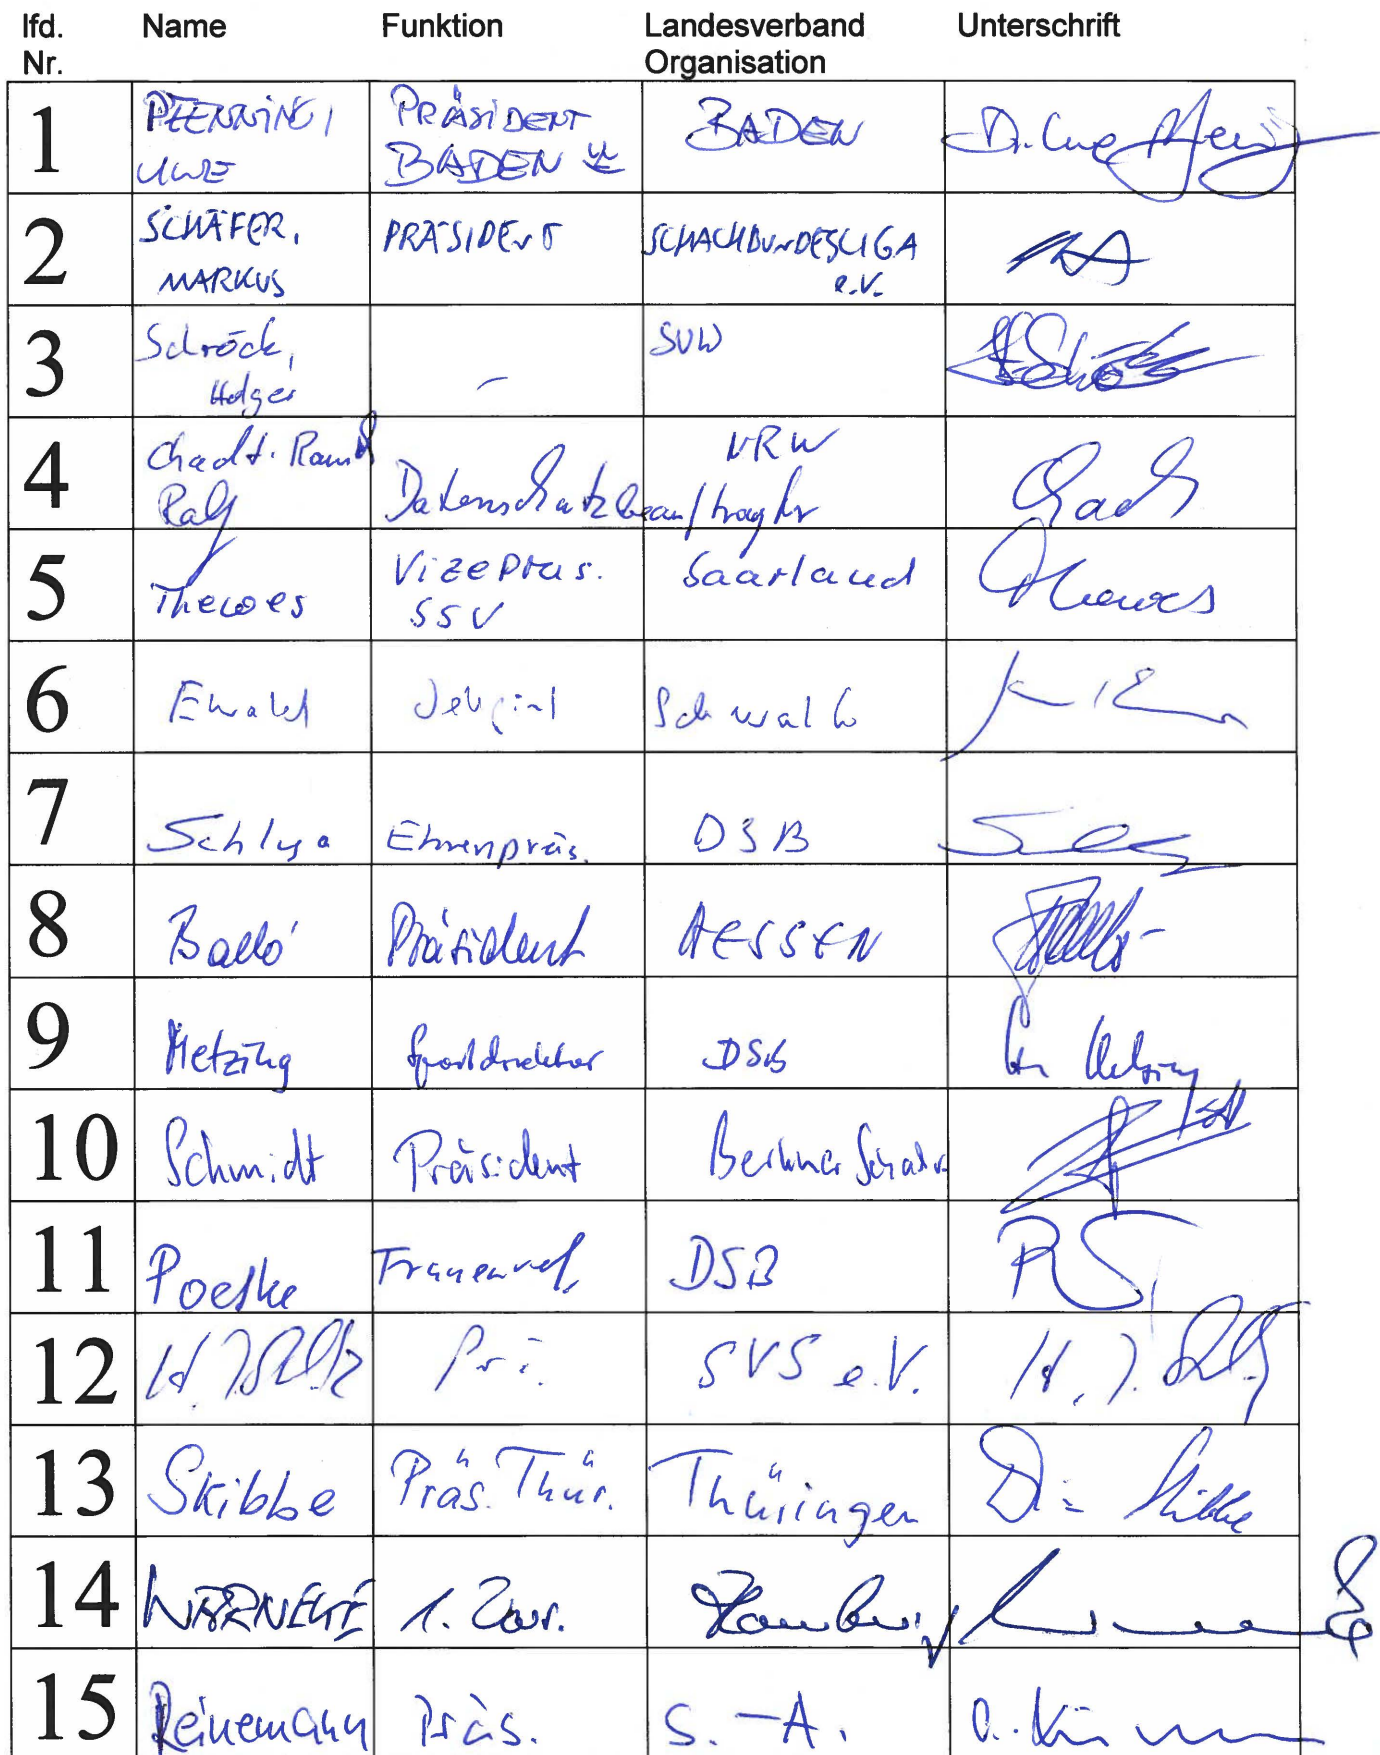 lfd. Nr. Name Funktion Landesverband Organisation Unterschrift
1 PFENNING, UWE PRÄSIDENT BADEN BADEN Dr. Uwe
2 SCHÄFER, MARKUS PRÄSIDENT SCHACHBUNDESLIGA e.V.
3 Schröck, Holger - SVW
4 Chadt-Rausch Ralf Datenschutzbeauftragter NRW
5 Thewes Vizepräs. SSV Saarland Thewes
6 Ewald Schwalbe
7 Schlya Ehrenpräs. DSB
8 Balló Präsident HESSEN
9 Metzing Sportdirektor DSB Metzing
10 Schmidt Präsident Berliner Schachv.
11 Poetke Frauenref. DSB
12 H. J. SVS e.V. H. J.
13 Skibbe Präs. Thür. Thüringen Skibbe
14 WARNEKE 1. Vors. Hamburg
15 Reinemann Präs. S.-A.